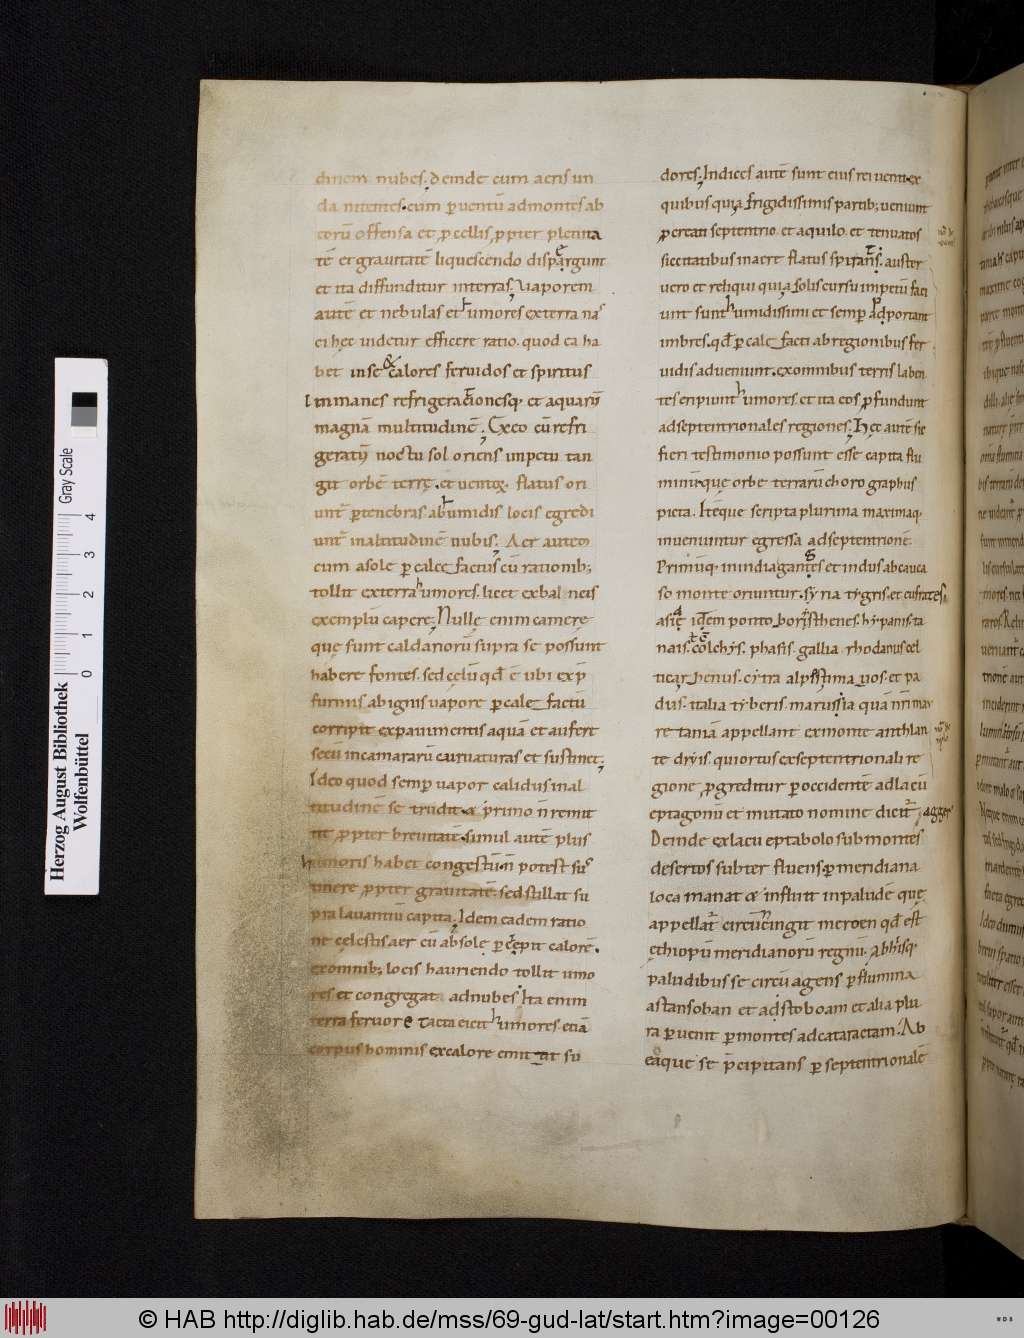 dinem nubes. deinde cum aeris un
da nitentes. cum ꝑuentū admontes ab
eorū offensa et ꝓcellis ꝓpter plenita
tē et grauitatē liquescendo dispargunt
et ita diffunditur interras. Uaporem
autē et nebulas et humores exterra nas
ci hęc uidetur efficere ratio. quod ea ha
bet inse & calores feruidos et spiritus
Inmanes refrigerationesq; et aquarū
magnā multitudinē. Exeo cū refri
geratū noctu sol oriens impetu tan
git orbē terrę. et uentoꝝ flatus ori
unt̄ ꝑtenebras abhumidis locis egredi
unt̄ inaltitudinē nubis. Aer autem
cum asole ꝑcalefactus cū rationib;
tollit exterra humores. licet exbalneis
exemplū capere. Nulle enim camerę
que sunt caldariorū supra se possunt
habere fontes. sed cęlū qd̄ ē ibi exp̄
furniis abignis uapore ꝑcalefactū
corripit expauimentis aquā et aufert
secū incamararū curuaturas et sustinet.
Ideo quod semꝑ uapor calidus inal
titudinē se trudit. & primo n̄ remit
tit ꝓpter breuitatē. simul autē plus
humoris habet congestū. n̄ potest sus
tinere ꝓpter grauitatē. sed stillat su
pra lauantiū capita. Idem eadem ratio
ne cęlestis aer cū absole ꝑcepit calorē.
exomnib; locis hauriendo tollit umo
res et congregat adnubes. Ita enim
terra feruore tacta eicit humores. etiā
corpus hominis excalore emittat su
dores. Indices autē sunt eius rei uenti. ex
quibus quia frigidissimis partib; ueniunt
ꝓcreati septentrio. et aquilo. et tenuatos
siccitatibus inaere flatus spirant. auster
uero et reliqui quia solis cursu impetū faci
unt sunt humidissimi et semꝑ adportant
imbres. qd̄ ꝑcalefacti abregionibus fer
uidis adueniunt. exomnibus terris laben
tes eripiunt humores. et ita eos ꝓfundunt
adseptentrionales regiones. Hęc autē sic
fieri testimonio possunt esse capita flu
minū. que orbe terrarū chorographiis
picta. Itēque scripta plurima maximaq;
inueniuntur egressa adseptentrionē.
Primūq. inindia gantes et indus abcauca
so monte oriuntur. syria tygris. et eufrates.
asię idem ponto boristhenes. hypanis. ta
nais. colchys. phasis. gallia rhodanus cel
tica rhenus. citra alpes tima uos. et pa
dus. italia tyberis. marussia quā nr̄i mau
retaniā appellant exmonte anthlan
te dryis. quiortus exseptentrionali re
gione ꝓgreditur ꝑoccidentē adlacū
eptagonū et mutato nomine dicit̄ agger
Deinde exlacu eptabolo submontes
desertos subter fluens ꝑmeridiana
loca manat & influit inpaludē que
appellat̄ circūcingit meroen qd̄ est
ęthiopū meridianorū regnū. Abhisq;
paludibus se circū agens ꝑflumina
astansoban et adstoboam et alia plu
ra ꝑuenit ꝑmontes adcataractam. Ab
eaque se p̄cipitans ꝑ septentrionalē
Herzog August Bibliothek
Wolfenbüttel
0 1 2 3 4
Gray Scale
© HAB http://diglib.hab.de/mss/69-gud-lat/start.htm?image=00126